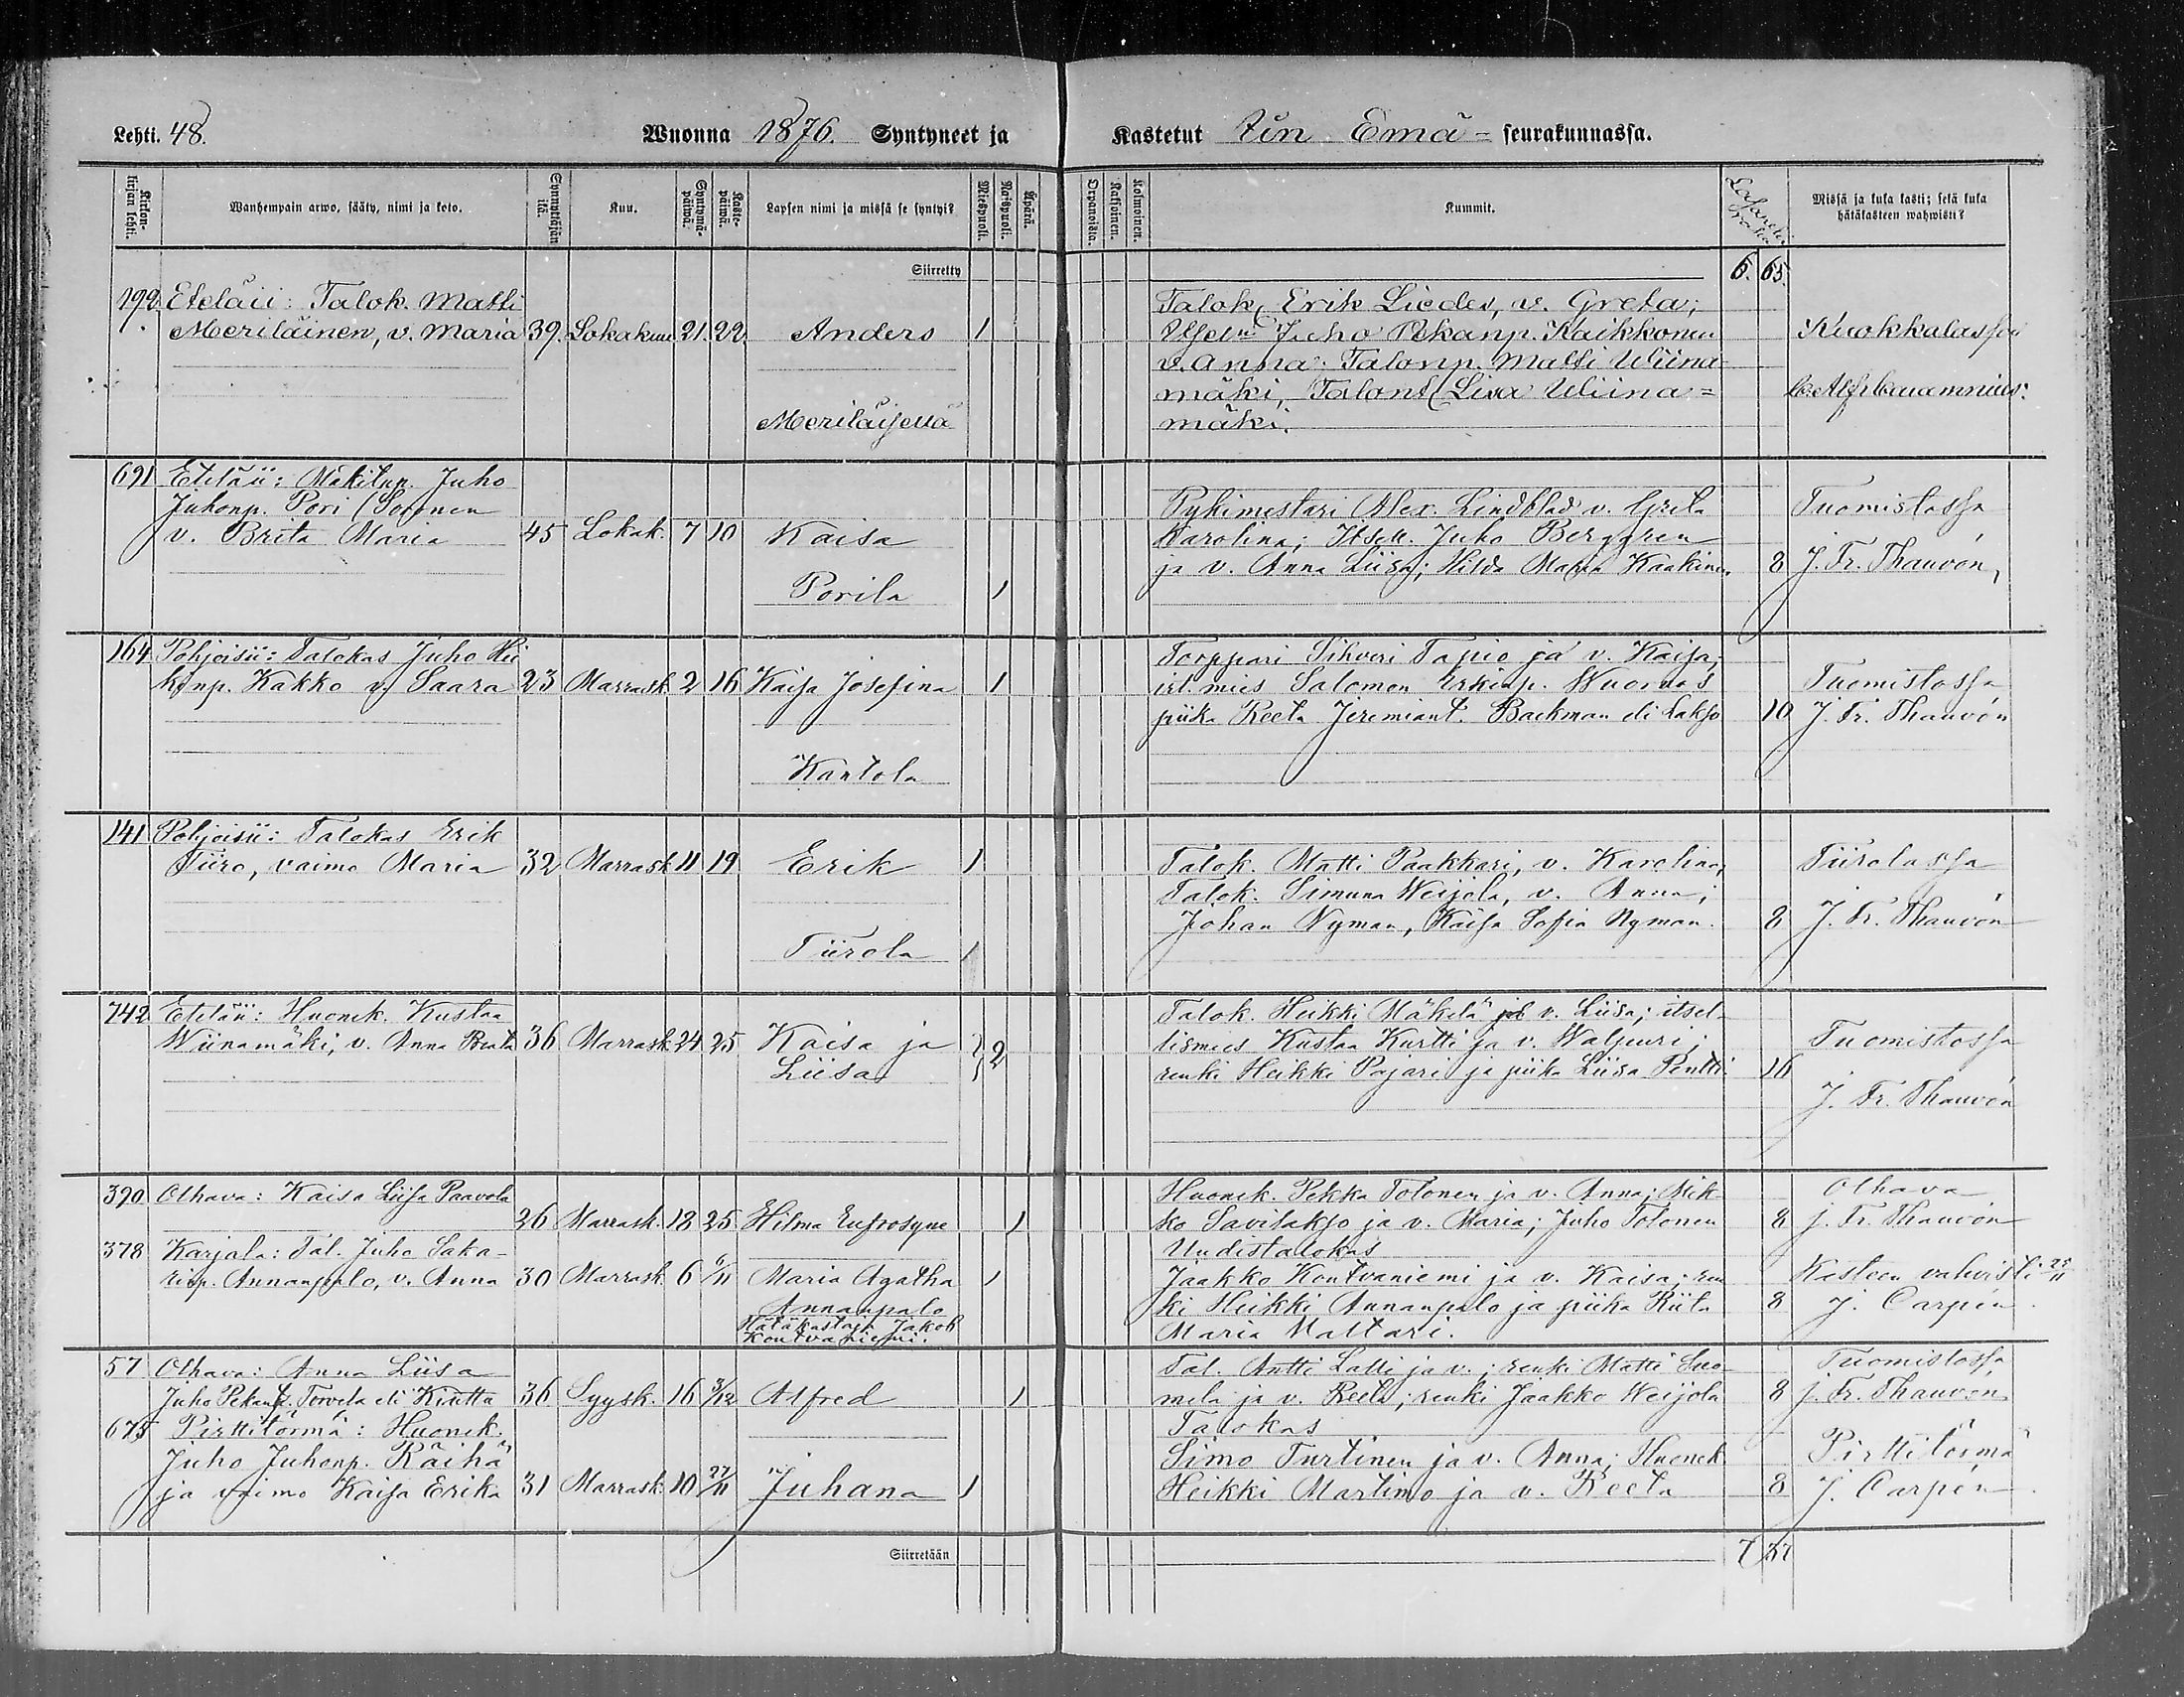 Lehti. 48. Wuonna 1876. Syntyneet ja Kastetut Iin Emä= seurakunnassa.
Kirkon-kirjan lehti.
Wanhempain arwo, sääty, nimi ja koto.
Synnyttäjän ikä.
Kuu.
Syntymä-päiwä.
Kaste-päiwä.
Lapsen nimi ja missä se syntyi?
Mieskpuoli.
Waimopuoli.
Äpärä.
Orpanoista.
Kaksoinen.
Kolmoinen.
Kummit.
Missä ja kuka kasti; sekä kuka
hätäkasteen wahwisti?
Siirretty 6. 65.
192. Eteläii: Talok. Matti
Meriläinen, v. Maria 39. Lokakuu 21. 22. Anders 1
Meriläjellä
Talok. Erik Liedes, v. Greta;
Juho Pekanp. Kaikkonen
v. Anna; Talonp. Matti Wiina
mäki, Talont. Lisa Wiina=
mäki.
Kuokkalassa
691 Eteläii: Mäkitup. Juho
Juhonp. Pori (Soronen
v. Brita Maria 45 Lokak. 7 10 Kaisa
Porila 1
Pykimestari Alex. Lindblad v. Greta
Karolina; Itsell. Juho Berggren
ja v. Anna Liisa; Hilda Maria Kaakinen
8
Tuomistossa
J. Fr. Thauvón,
164 Pohjoisii: Talokas Juho Hei
kinp. Kakko v. Saara 23 Marrask. 2 16 Kaisa Josefina 1
Kantola
Torppari Sihveri Tapio ja v. Kaisa;
irt. mies Salomon Erkinp. Wuornos
piika Reeta Jeremiant. Backman eli Lakso
10
Tuomistossa
J. Fr. Thauvón
141 Pohjoisii: Talokas Erik
Tiiro, vaimo Maria 32 Marrask 11 19 Erik 1
Tiirola
Talok. Matti Paakkari, v. Karolina;
Talok. Simuna Weijola, v. Anna;
Johan Nyman, Kaisa Sofia Nyman.
8
Tiirolassa
J. Fr. Thauvón
742 Eteläii: Huonek. Kustaa
Wiinamäki, v. Anna Beata 36 Marrask. 24 25 Kaisa ja
Liisa 2
Talok. Heikki Mäkelä ja v. Liisa; itsel-
lismies Kustaa Kurtti ja v. Walpuri;
renki Heikki Pajari ja piika Liisa Pentti
16
Tuomistossa
J. Fr. Thauvón
390 Olhava: Kaisa Liisa Paavola
26 Marrask. 18 25 Hilma Eufrosyne 1
Huonek. Pekka Tolonen ja v. Anna; Mik-
ko Savilakso ja v. Maria; Juho Tolonen
8
Olhava
J. Fr. Thauvón
378 Karjala: Tal. Juho Saka-
rinp. Annanpalo, v. Anna 30 Marrask. 6 6/11 Maria Agatha 1
Annanpalo
Hätäkastaja Jakob
Kontvaniemi.
Uudistalokas
Jaakko Kontvaniemi ja v. Kaisa; ren
ki Heikki Annanpalo ja piika Riita
Maria Mattari.
8
Kasteen vahvisti 25/11
J. Carpén.
57 Olhava: Anna Liisa
Juho Pekant. Torvela eli Kiutta 36 Syysk. 16 3/12 Alfred 1
Tal. Antti Lalli ja v.; renki Matti Suo-
mela ja v. Reeta; renki Jaakko Weijola
8
Tuomistossa
J. Fr. Thauvón
675 Pirttitörmä: Huonek.
Juho Juhonp. Räihä
ja vaimo Kaisa Erika 31 Marrask. 10 27/11 Juhana 1
Talokas
Simo Turtinen ja v. Anna; Huonek
Heikki Martimo ja v. Reeta
8
Pirttitörmä
J. Carpén.
Siirretään 7 57